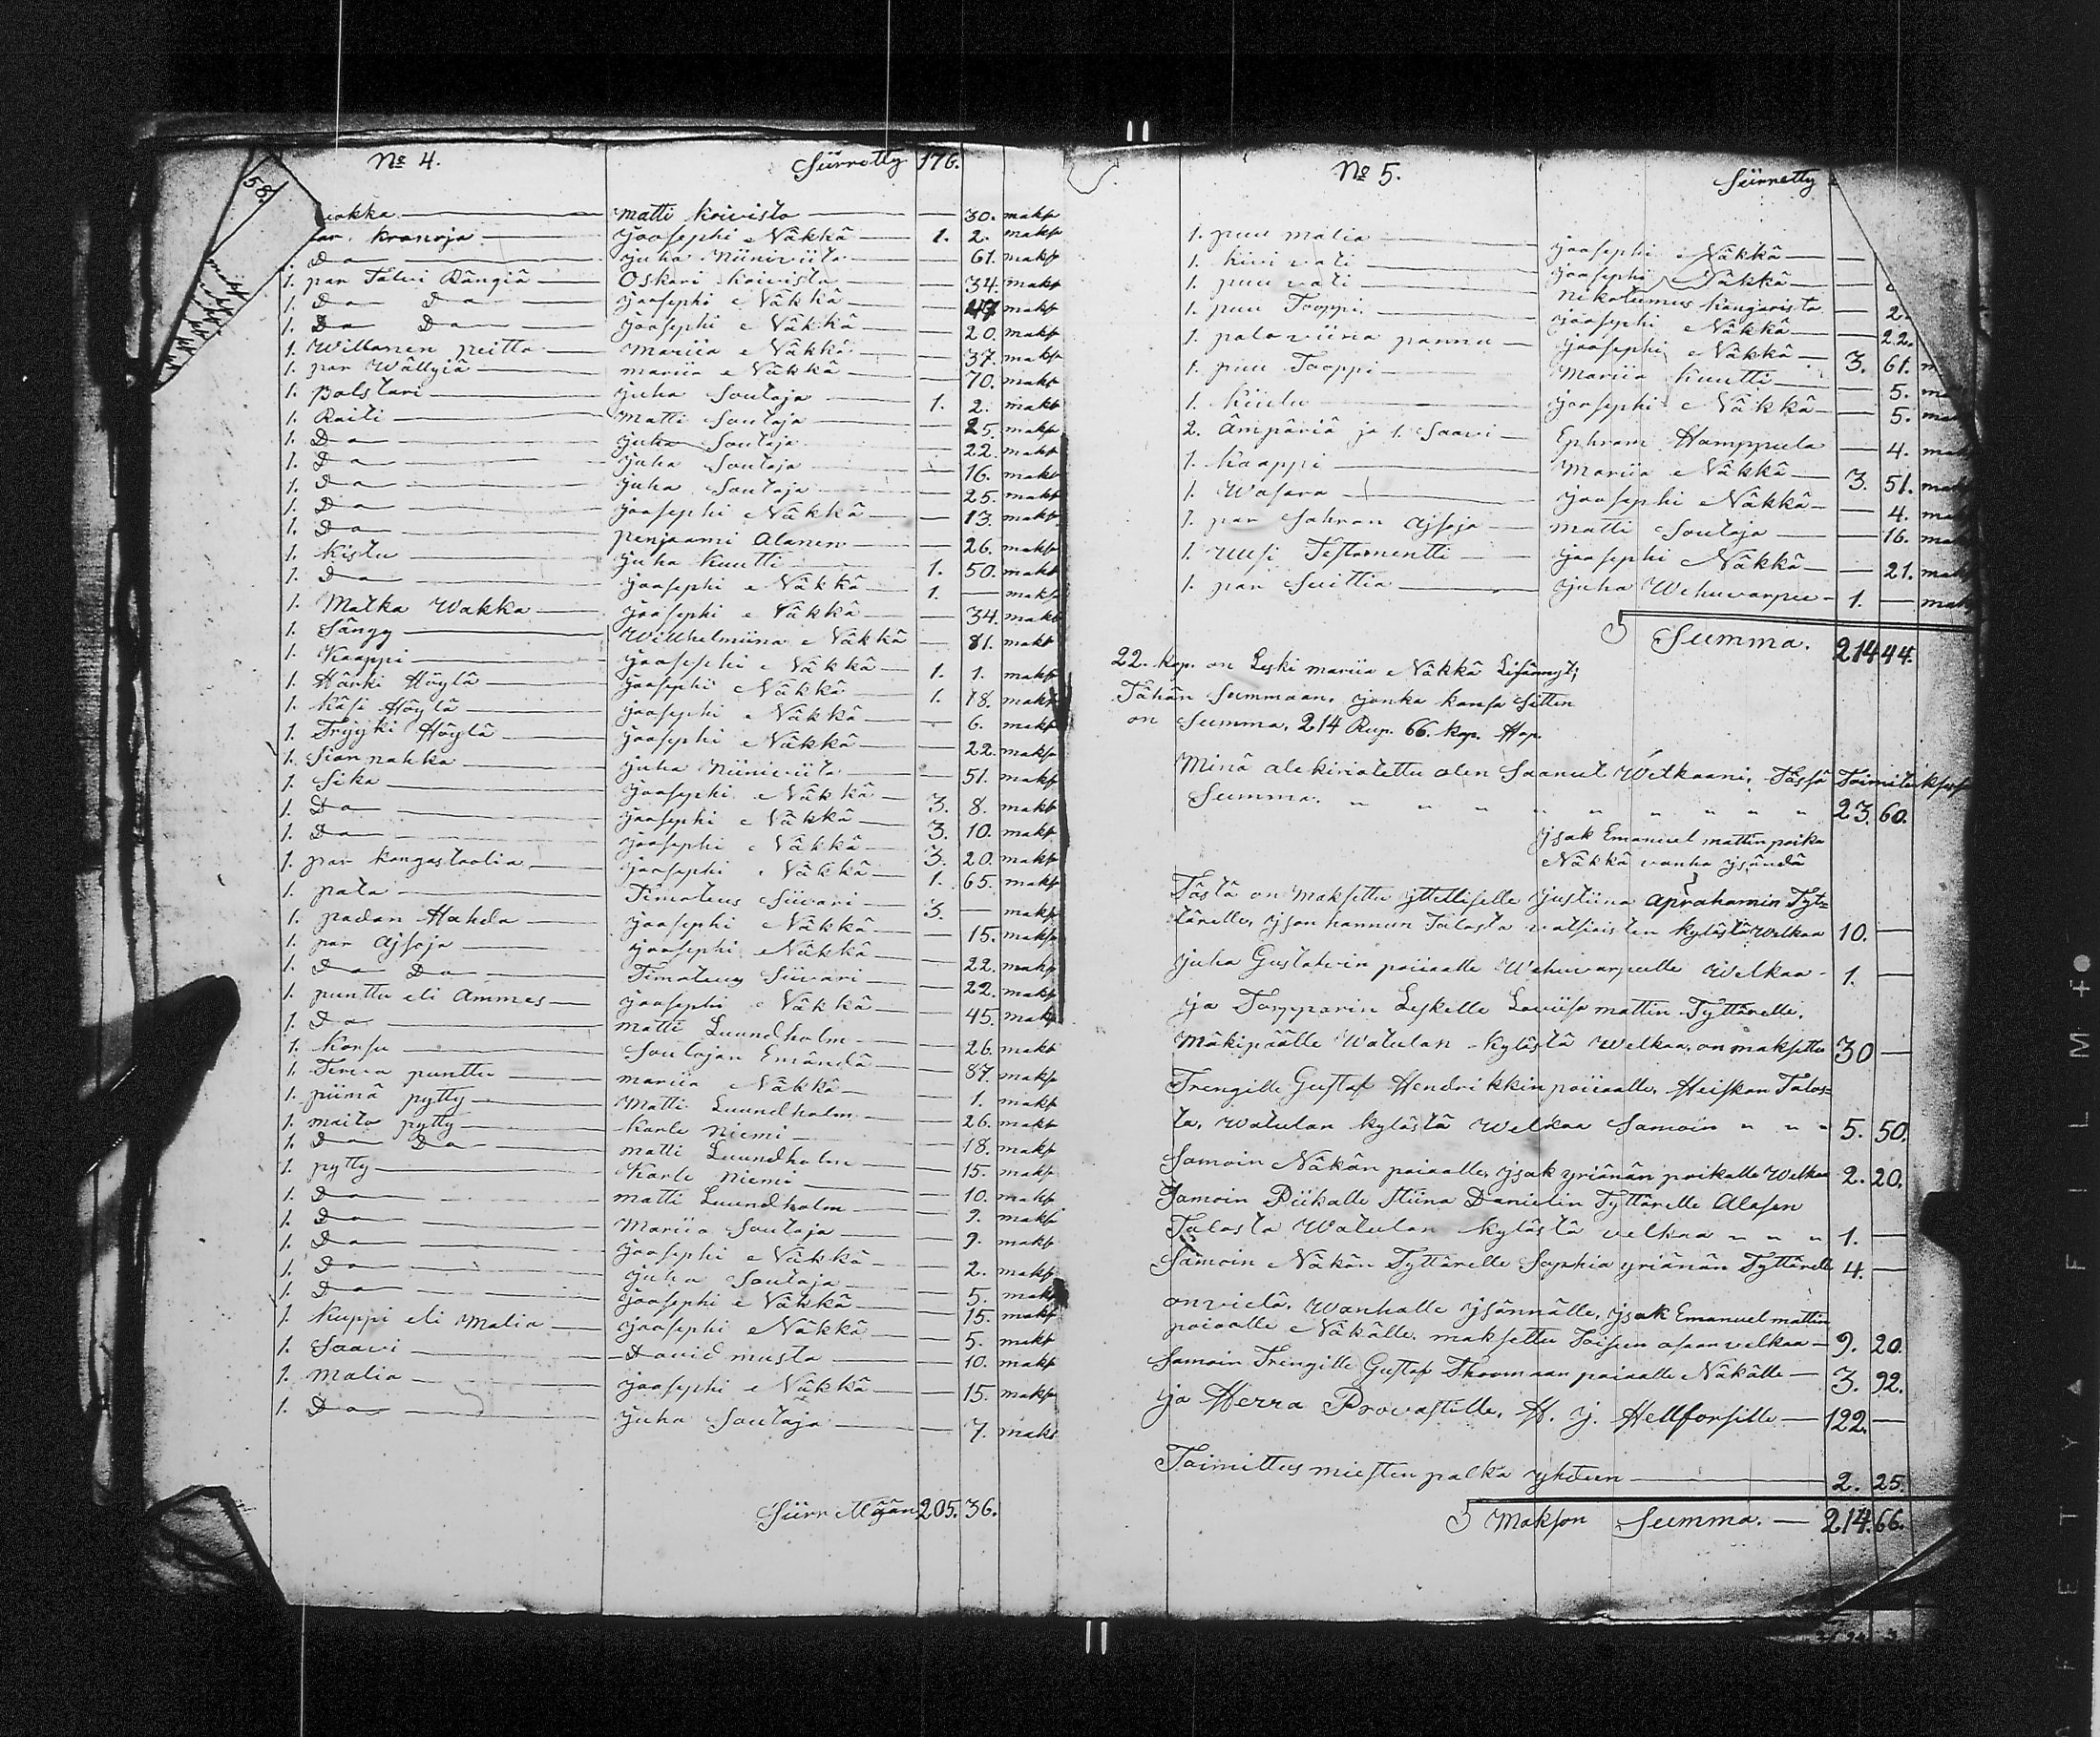 58.
No 4. Siirretty 176.
wakka — Matti Koivisto — 30. maks
par. Kranoja — Joosephi Näkkä — 1. 2. maks
Do — Juha Niiniviita — 61. maks
1. par Talvi Rängiä — Oskari Koivisto — 34. maks
1. Do Do — Joosephi Näkkä — 47 maks
1. Do Do — Joosephi Näkkä — 20. maks
1. Willanen peitto — Mariia Näkkä — 37. maks
1. par Wällyiä — Mariia Näkkä — 70. maks
1. Polstari — Juha Soutaja — 1. 2. maks
1. Raiti — Matti Soutaja — 25. maks
1. Do — Juha Soutaja — 22. maks
1. Do — Juha Soutaja — 16. maks
1. Do — Juha Soutaja — 25. maks
1. Do — Joosephi Näkkä — 13. maks
1. Do — penjaami Alanen — 26. maks
1. Kistu — Juha Kuutti — 1. 50. maks
1. Do — Joosephi Näkkä — 1. — maks
1. Matka Wakka — Joosephi Näkkä — 34. maks
1. Sängy — Willhelmiina Näkkä — 81. maks
1. Kaappi — Joosephi Näkkä — 1. 1. maks
1. Härki Höylä — Joosephi Näkkä — 1. 18. maks
1. Käsi Höylä — Joosephi Näkkä — 6. maks
1. Tryyki Höylä — Joosephi Näkkä — 22. maks
1. Sian nahka — Juha Niiniviita — 51. maks
1. Sika — Joosephi Näkkä — 3. 8. maks
1. Do — Joosephi Näkkä — 3. 10. maks
1. Do — Joosephi Näkkä — 3. 20. maks
1. par kangastoolia — Joosephi Näkkä — 1. 65. maks
1. pata — Timoteus Siivari — 3. — maks
1. padan Hahda — Joosephi Näkkä — 15. maks
1. par Ajsoja — Joosephi Näkkä — 22. maks
1. Do Do — Timoteus Siivari — 22. maks
1. punttu eli Ammes — Joosephi Näkkä — 45. maks
1. Do — Matti Luundholm — 26. maks
1. Korsu — Soutajan Emändä — 87. maks
1. Terva punttu — Mariia Näkkä — 1. maks
1. piimä pytty — Matti Luundholm — 26. maks
1. maito pytty — Karle Niemi — 18. maks
1. Do Do — Matti Luundholm — 15. maks
1. pytty — Karle Niemi — 10. maks
1. Do — Matti Luundholm — 9. maks
1. Do — Mariia Soutaja — 9. maks
1. Do — Joosephi Näkkä — 2. maks
1. Do — Juha Soutaja — 5. maks
1. Do — Joosephi Näkkä — 15. maks
1. Kuppi eli Malia — Joosephi Näkkä — 5. maks
1. Saavi — David musta — 10. maks
1. Malia — Joosephi Näkkä — 15. maks
1. Do — Juha Soutaja — 7. maks
Siirrettään 205. 36.
No 5. Siirretty
1. puu malia — Joosephi Näkkä —
1. kivi vati — Joosephi Näkkä —
1. puu vati — Nikotumus Kangarista — 2.
1. puu Tooppi — Joosephi Näkkä — 22.
1. paloviina pannu — Joosephi Näkkä — 3. 61. m
1. puu Tooppi — Mariia Kuutti — 5. ma
1. Kiulu — Joosephi Näkkä — 5. mak
2. Ämpäriä ja 1. Saavi — Ephram Hamppula — 4. mak
1. Kaappi — Mariia Näkkä — 3. 51. mak
1. Wasara — Joosephi Näkkä — 4. mak
1. par Sahran Ajsoja — Matti Soutaja — 16. mak
1. Uusi Testamentti — Joosephi Näkkä — 21. mak
1. par Suittia — Juha Wehuvarpee — 1. — mak
Summa. 214 44.
22. kop. on Leski mariia Näkkä Lisännyt;
Tähän Summaan, jonka kansa Sitten
on Summa, 214 Rup. 66. kop. Hop.
Minä alekiriotettu olen Saanut Wélkaani, Tässä Toimituksesa
Summa. " " " " " " " " 23. 60.
Jsak Emanuel mattin poika
Näkkä vanha jsändä
Tästä on Maksettu yttelliselle Justiina Aprahamin Tyt=
tärelle, Json hannun Talosta valsiaisten kylästä Welkaa 10. —
Juha Gustafvin poiiaalle Wehuvarpelle Welkaa — 1. —
ja Torpparin Leskelle Loviisa mattin Tyttärelle,
Mäkipäälle Watulan kylästä Welkaa, on maksettu 30 —
Trengille Gustaf Hendrikkin poiiaalle, Heiskan Talos=
ta, Watulan kylästä Welkaa Samoin " " " 5. 50.
Samoin Näkän poiaalle, Jsak yriänän poikalle Welkaa 2. 20.
Samoin Piikalle Stiina Danielin Tyttärelle Alasen
Talosta Watulan kylästä velkaa " " " 1. —
Samoin Näkän Tyttärelle Sophia yriänän Tyttärelle 4. —
on vielä, Wanhalle jsännälle, Jsak Emanuel mattin
poiaalle Näkälle maksettu Toisen asian velkaa — 9. 20.
Samoin Trengille Gustaf Thoomaan poiaalle Näkälle — 3. 92.
ja Herra Provastille, H. J. Hellforsille — 122. —
Toimittus miesten palka yhteen — 2. 25.
Makson Summa. — 214. 66.
FILM